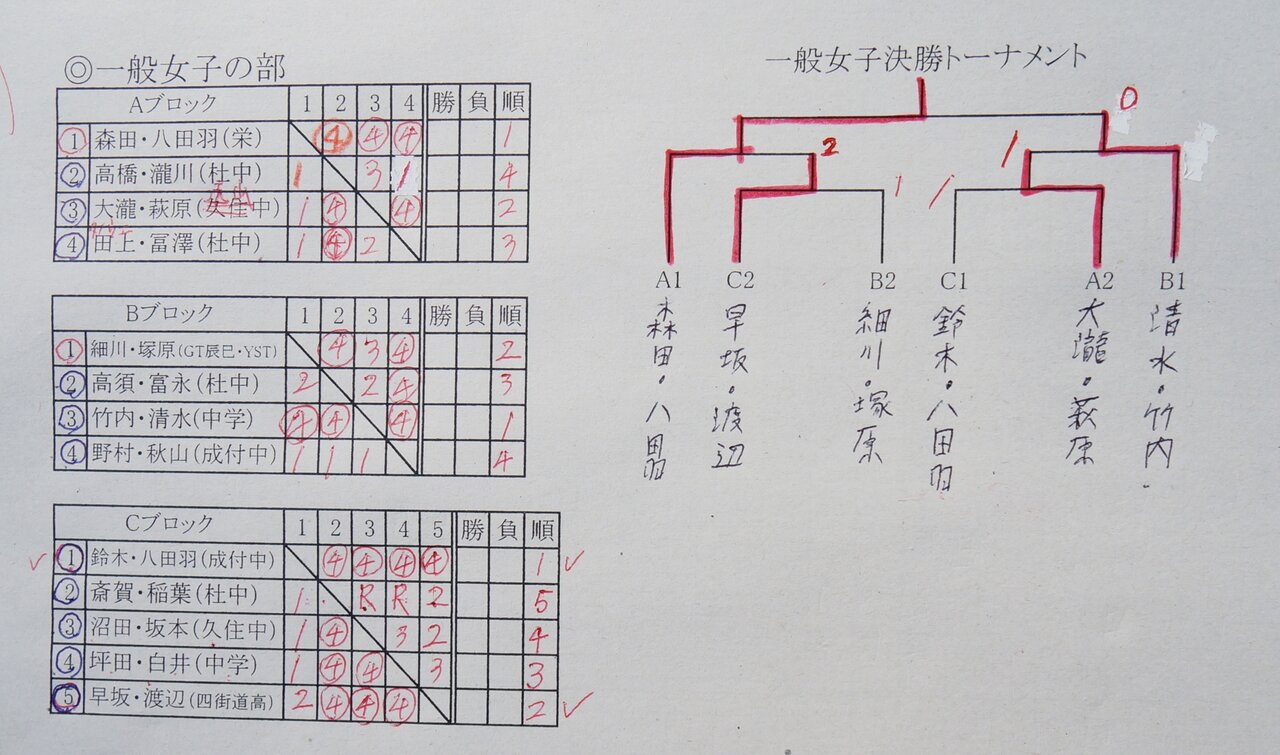 ◎一般女子の部
Aブロック 1 2 3 4 勝 負 順
① 森田・八田羽(栄) ④ ④ ④ 1
② 高橋・瀧川(杜中) 1 3 1 4
③ 大瀧・萩原(久住中) 1 ④ ④ 2
④ 田上・冨澤(杜中) 1 ④ 2 3
Bブロック 1 2 3 4 勝 負 順
① 細川・塚原(GT辰巳・YST) ④ 3 ④ 2
② 高須・富永(杜中) 2 2 ④ 3
③ 竹内・清水(中学) ④ ④ ④ 1
④ 野村・秋山(成付中) 1 1 1 4
Cブロック 1 2 3 4 5 勝 負 順
① 鈴木・八田羽(成付中) ④ ④ ④ ④ 1
② 斎賀・稲葉(杜中) 1 R R 2 5
③ 沼田・坂本(久住中) 1 ④ 3 2 4
④ 坪田・白井(中学) 1 ④ ④ 3 3
⑤ 早坂・渡辺(四街道高) 2 ④ ④ ④ 2
一般女子決勝トーナメント
0
2 1
1 1
A1 C2 B2 C1 A2 B1
森田・八田羽
早坂・渡辺
細川・塚原
鈴木・八田羽
大瀧・萩原
清水・竹内